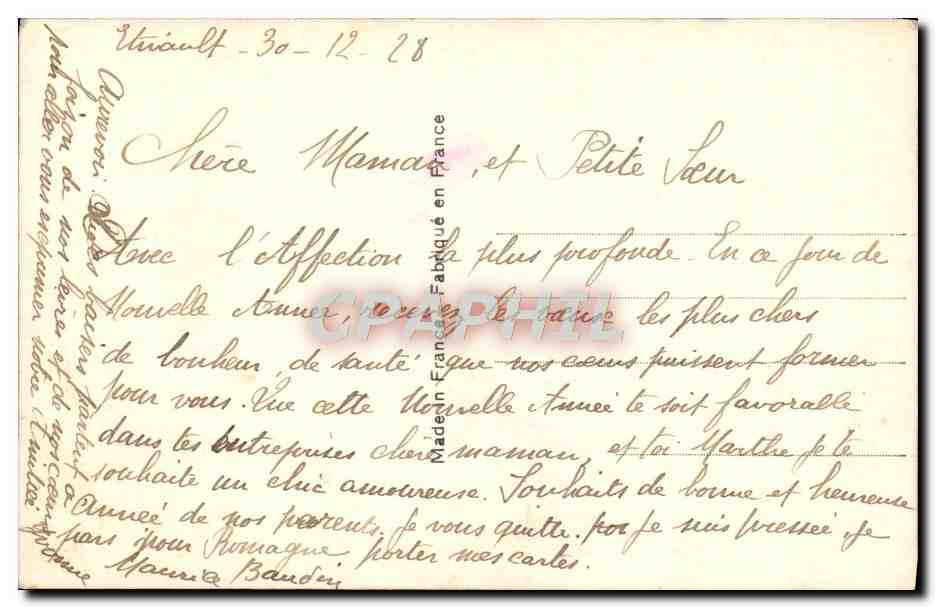 30-12-28
Chère Maman, et Petite Sœur
Avec l'Affection la plus profonde. En ce jour de
Nouvelle Année, recevez les vœux les plus chers
de bonheur, de santé que nos cœurs puissent former
pour vous. Que cette Nouvelle Année te soit favorable
dans tes entreprises chère maman, et toi Marthe je te
souhaite un chic amoureuse. Souhaits de bonne et heureuse
Année de nos parents, je vous quitte. je suis pressée, je
pars pour Romagne porter mes cartes.
Maurice Baudin
Aurevoir baisers partent à
foizon de nos lèvres et de nos cœurs
pour aller vous exprimer notre Amitié
Made in France - Fabriqué en France
CPAPHIL